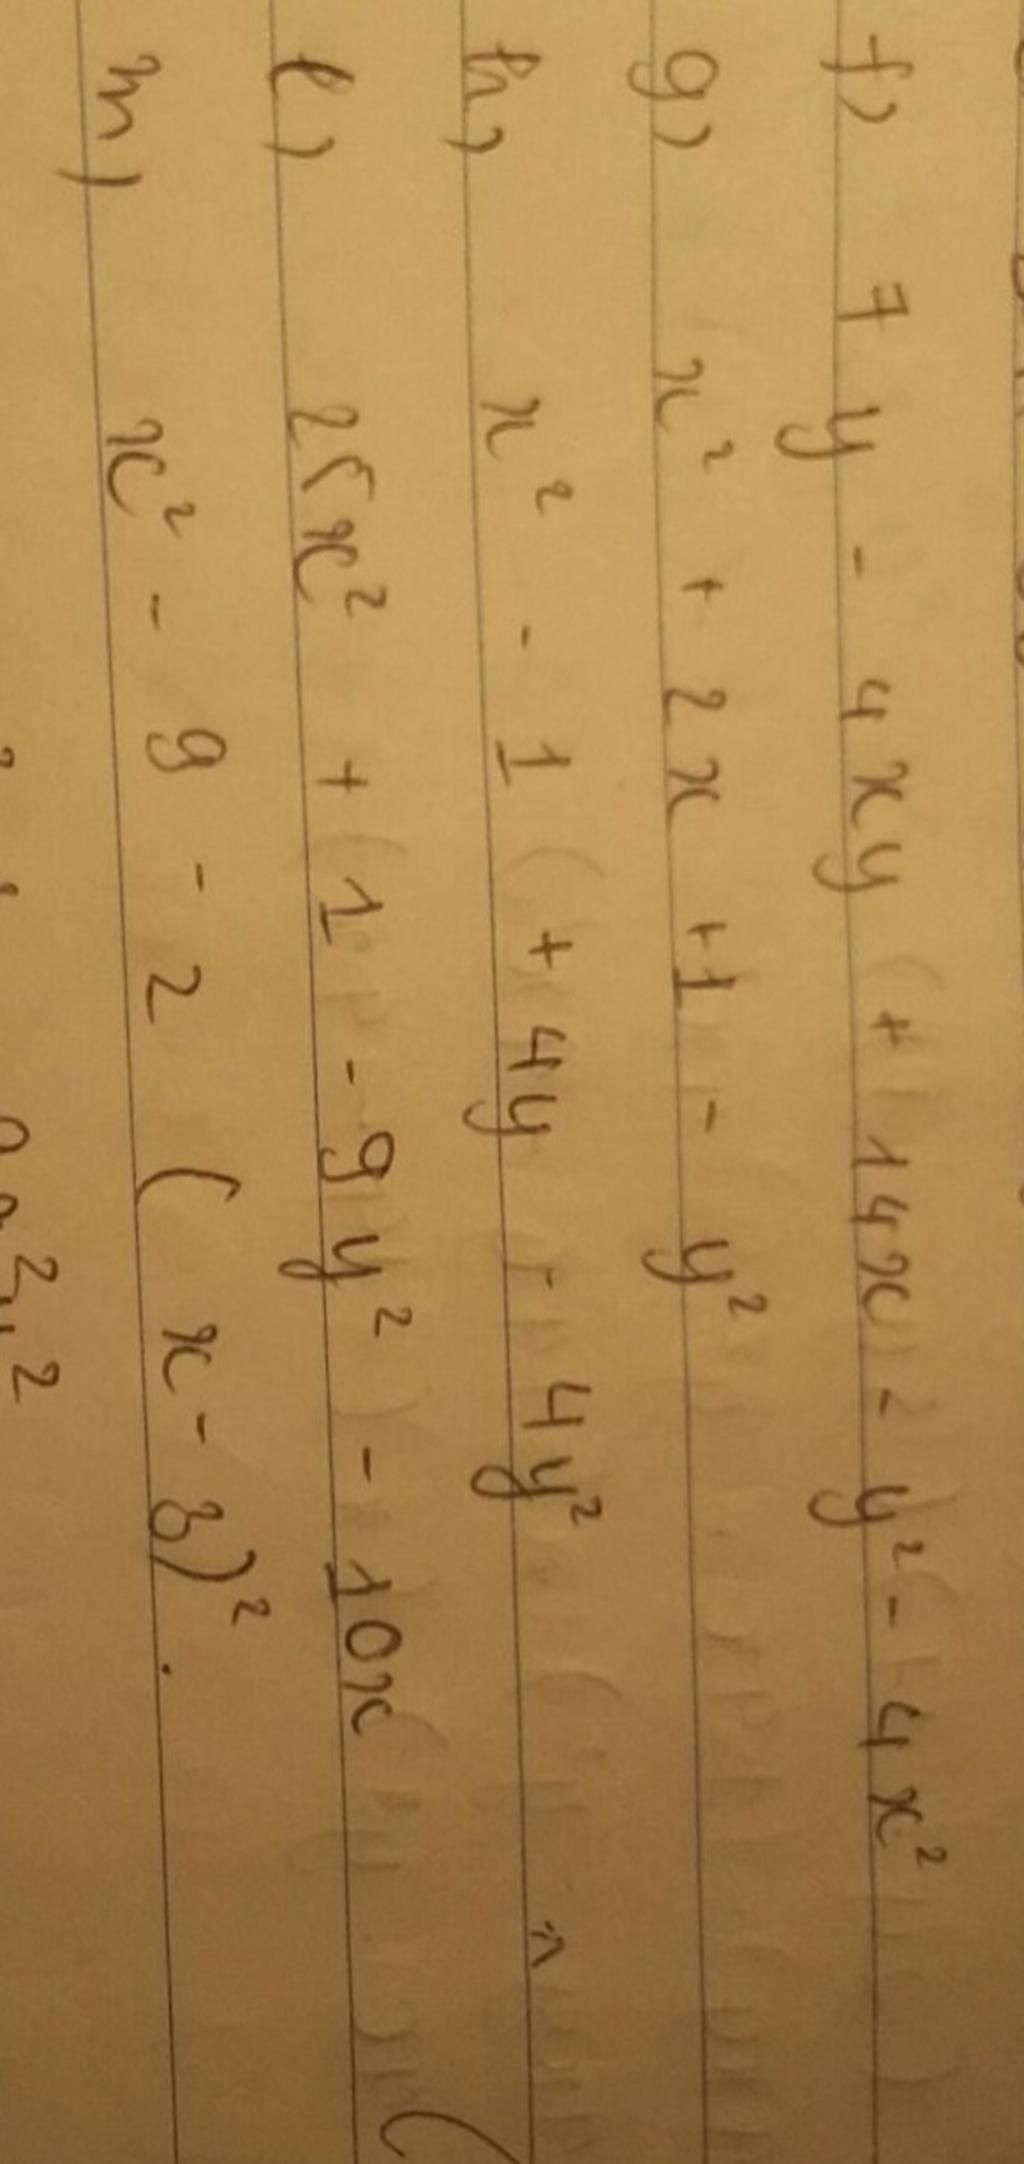 f) 7y - 4xy + 14x - y² - 4x²
g) x² + 2x + 1 - y²
h) x² - 1 + 4y - 4y²
l) 25x² + 1 - 9y² - 10x
m) x² - 9 - 2 (x - 3)².